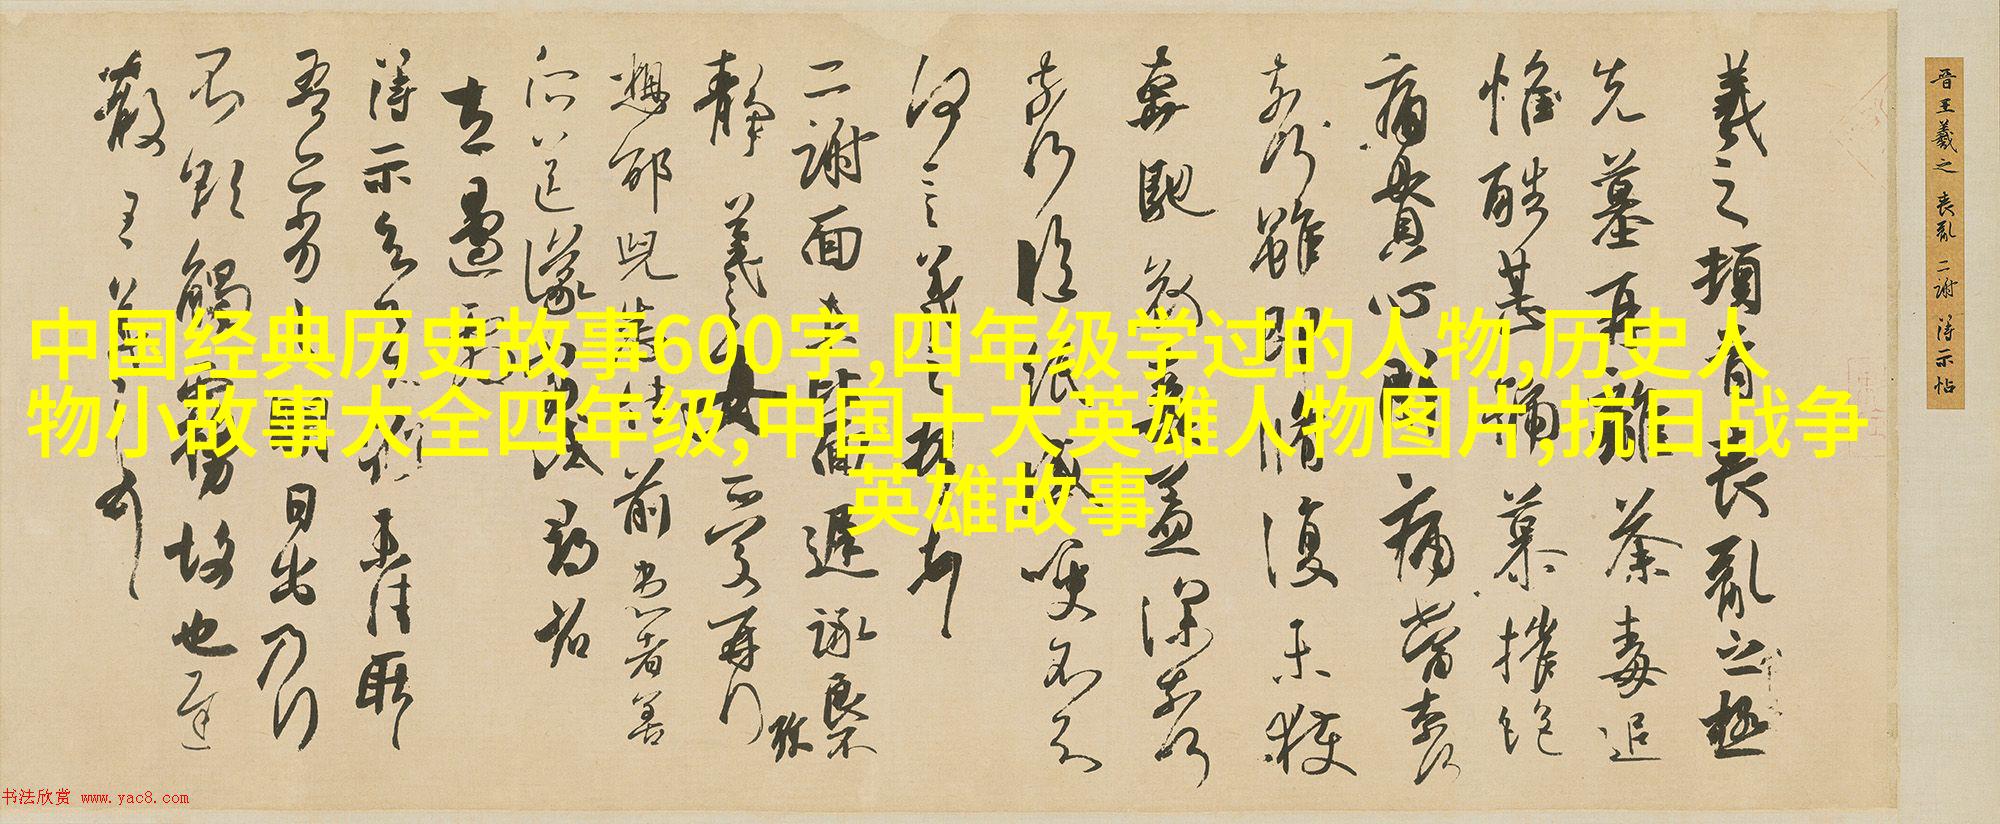 晋王羲之 喪亂 二謝 得示帖
羲之頓首喪亂之極
先墓再離荼毒追
惟酷甚號慕摧絕
痛貫心肝痛當奈何
奈何雖即脩復未獲
奔馳哀毒益深奈何
奈何臨紙感哽不知
何言羲之頓首頓首
二謝面未比面遲詠良不
靜羲之女愛再拜
想邵兒悉佳前患者善
所送議當試尋省
左邊劇
得示知足下猶未佳耿耿
吾亦劣劣明日出乃行
不欲觸霧故也遲
散王羲之頓首
中国经典历史故事600字,四年级学过的人物,历史人
物小故事大全四年级,中国十大英雄人物图片,抗日战争
英雄故事
书法欣赏 www.yac8.com